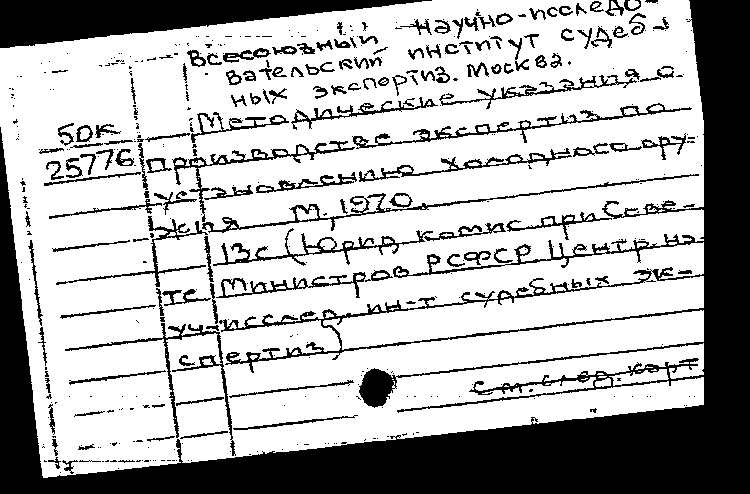 Всесоюзный научно-исследо-
вательский институт судеб-
ных экспертиз. Москва.
50к
25776
Методические указания о
производстве экспертиз по
установлению холодного ору-
жия М., 1970.
13с (Юрид. комис при Сове-
те Министров РСФСР Центр. на-
уч-исслед. ин-т судебных эк-
спертиз)
См. след. карт.